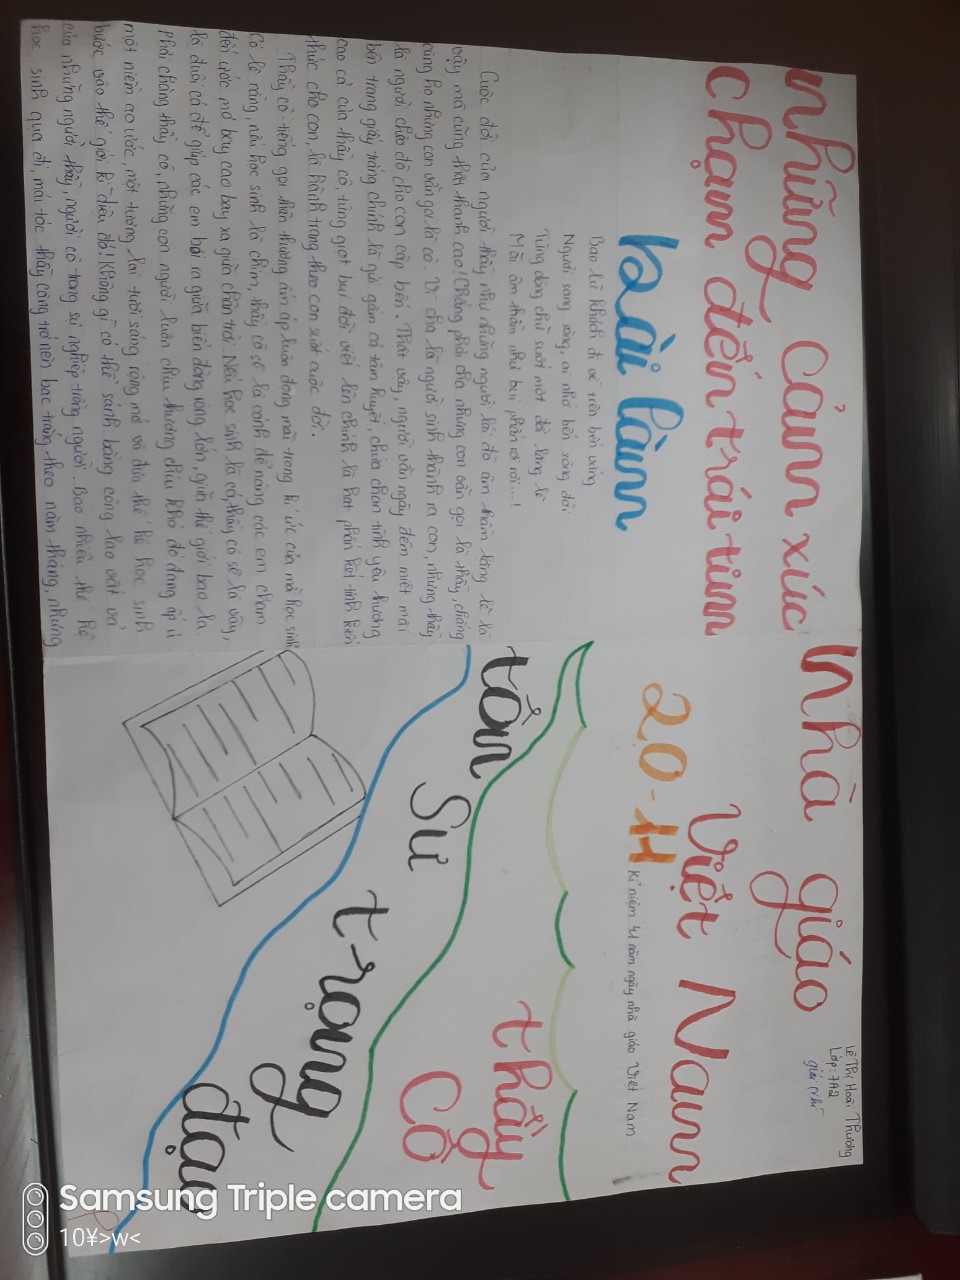 Những cảm xúc
chạm đến trái tim
Bài làm
Bao lữ khách đi về trên bến vắng
Người sang sông, ai nhớ bến sông đời
Từng dòng chữ suốt một đời lặng lẽ
Mãi âm thầm như bụi phấn rơi rơi...!
Cuộc đời của người thầy như những người lái đò âm thầm lặng lẽ là
vậy mà cũng thật thanh cao! Chẳng phải cha nhưng con vẫn gọi là thầy, chẳng
cùng họ nhưng con vẫn gọi là cô. Vì cha là người sinh thành ra con, nhưng thầy
là người chèo đò cho con cập bến. Thật vậy, người vẫn ngày đêm miệt mài
bên trang giấy trắng chính là gửi gắm cả tâm huyết, chứa chan tình yêu thương
cao cả của thầy cô, từng giọt bụi đời viết lên chính là hạt phấn kết tinh kiến
thức cho con, là hành trang theo con suốt cuộc đời.
Thầy cô - tiếng gọi thân thương ấm áp luôn đọng mãi trong kí ức của mỗi học sinh
Có lẽ rằng, nếu học sinh là chim, thầy cô sẽ là cánh để nâng các em chạm
đến ước mơ bay cao bay xa giữa chân trời. Nếu học sinh là cá, thầy cô sẽ là vây,
là đuôi cá để giúp các em bơi ra giữa biển đông rộng lớn, giữa thế giới bao la.
Phải chăng thầy cô, những con người luôn chịu thương chịu khó đó đang ấp ủ
một niềm ao ước, một tương lai tươi sáng rộng mở và đưa thế hệ học sinh
bước vào thế giới kì diệu đó! Không gì có thể sánh bằng công lao vất vả
của những người thầy, người cô trong sự nghiệp trồng người. Bao nhiêu thế hệ
học sinh qua đi, mái tóc thầy càng trở nên bạc trắng theo năm tháng, nhưng
Lê Thị Hoài Thương
Lớp: 7A2
giải Nhì
Nhà giáo
Việt Nam
20-11
Kỉ niệm 41 năm ngày nhà giáo Việt Nam
tôn
Sư
trọng
đạo
thầy
Cô
Samsung Triple camera
10¥>w<